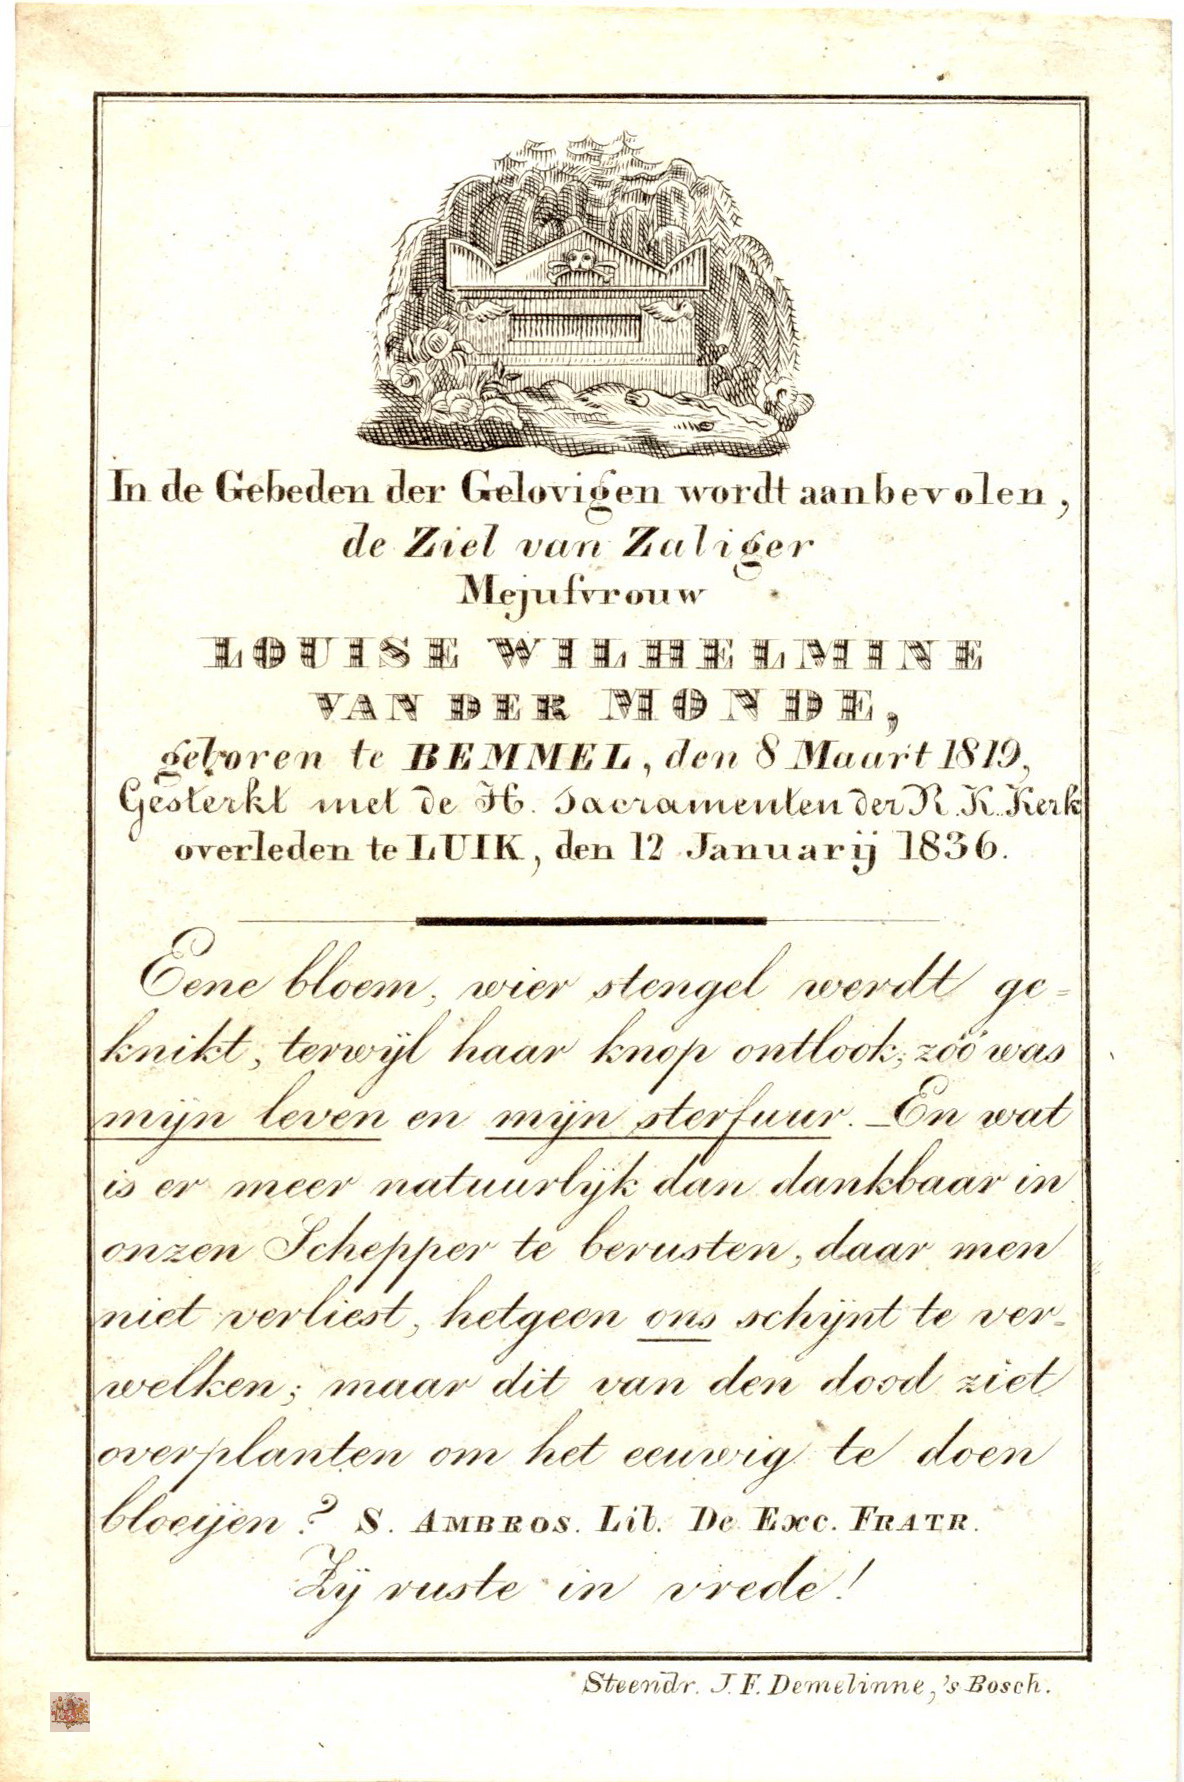 In de Gebeden der Gelovigen wordt aanbevolen,
de Ziel van Zaliger
Mejufvrouw
LOUISE WILHELMINE
VAN DER MONDE,
geboren te BEMMEL, den 8 Maart 1819,
Gesterkt met de H. Sacramenten der R. K. Kerk
overleden te LUIK, den 12 Januarij 1836.
Eene bloem, wier stengel werdt ge=
knikt, terwijl haar knop ontlook; zóó was
mijn leven en mijn sterfuur. _En wat
is er meer natuurlijk dan dankbaar in
onzen Schepper te berusten, daar men
niet verliest, hetgeen ons schijnt te ver=
welken; maar dit van den dood ziet
overplanten om het eeuwig te doen
bloeijen? S. AMBROS. Lib. De Exc. FRATR.
Zij ruste in vrede!
Steendr. J. F. Demelinne, 's Bosch.